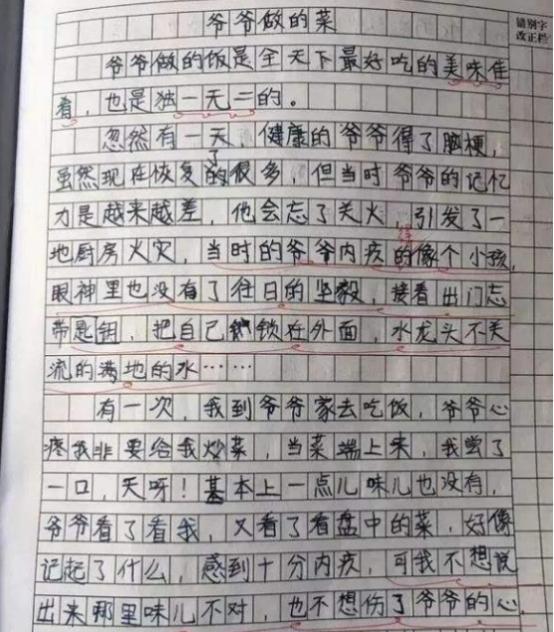 错别字
改正栏
爷爷做的菜
爷爷做的饭是全天下最好吃的美味佳
肴,也是独一无二的。
忽然有一天,健康的爷爷得了脑梗,
虽然现在恢复的很多,但当时爷爷的记忆
了
力是越来越差,他会忘了关火,引发了一
地厨房火灾,当时的爷爷内疚的像个小孩,
得
眼神里也没有了往日的坚毅,接着出门忘
带匙钥,把自己锁在外面,水龙头不关
流的满地的水……
有一次,我到爷爷家去吃饭,爷爷心
疼我非要给我炒菜,当菜端上来,我尝了
一口,天呀!基本上一点儿味儿也没有,
爷爷看了看我,又看了看盘中的菜,好像
记起了什么,感到十分内疚,可我不想说
出来那里味儿不对,也不想伤了爷爷的心,